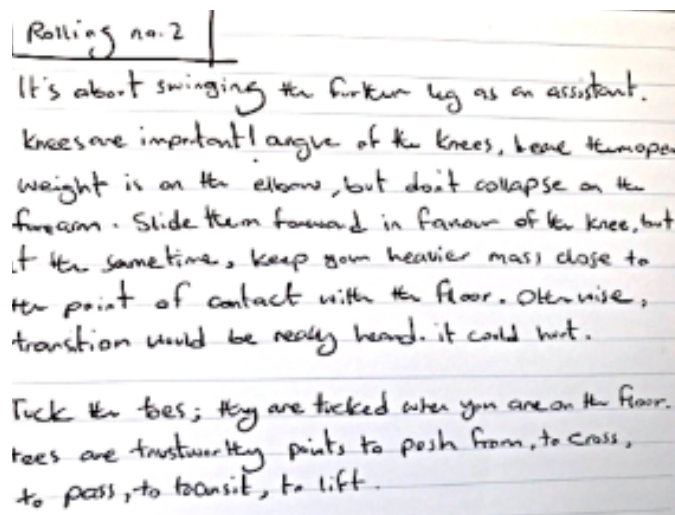 Rolling no. 2
It's about swinging the further leg as an assistant.
Knees are important! angle of the knees, leave them open
weight is on the elbow, but don't collapse on the
forearm. Slide them forward in favour of the knee, but
at the same time, keep your heavier mass close to
the point of contact with the floor. Otherwise,
transition would be really heard. it could hurt.
Tuck the toes; they are tucked when you are on the floor.
toes are trustworthy points to push from, to cross,
to pass, to transit, to lift.